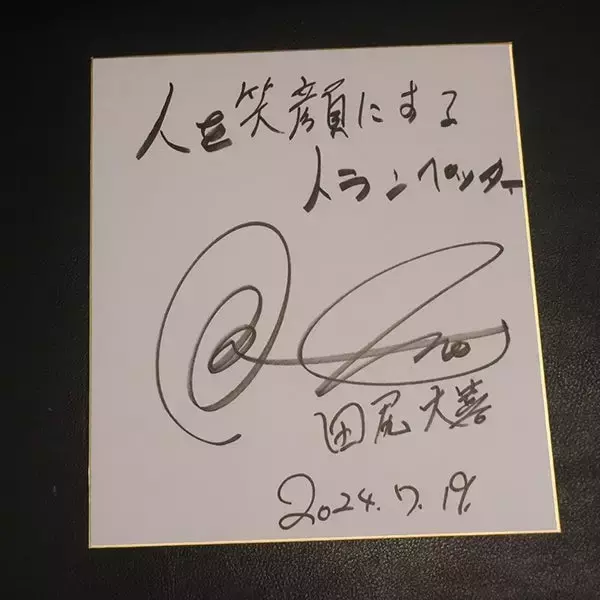 人を笑顔にする
トランペッター
田尾大喜
2024.7.19.